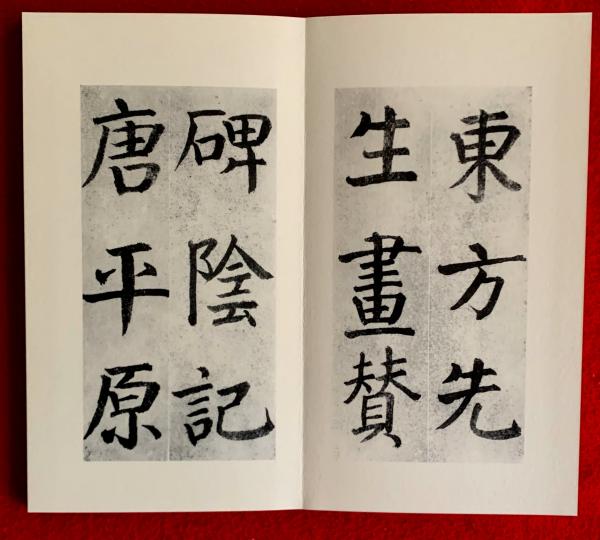 東方先
生畫賛
碑陰記
唐平原